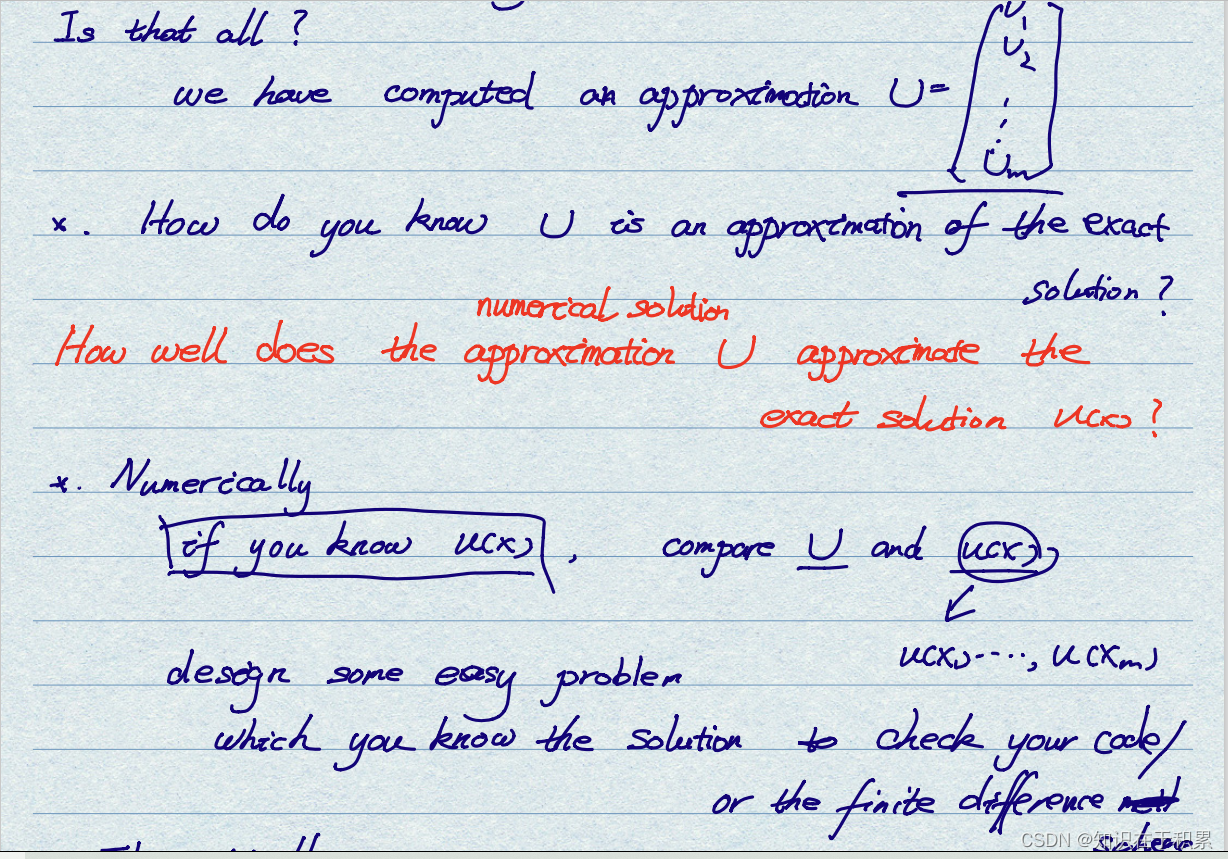 Is that all ?
we have computed an approximation U = [U1 U2 ⋮ Um]
x. How do you know U is an approximation of the exact
solution ?
numerical solution
How well does the approximation U approximate the
exact solution u(x) ?
x. Numerically
if you know u(x) , compare U and u(x),
u(x) ...., u(xm)
design some easy problem
which you know the solution to check your code/
or the finite difference
CSDN @知识在于积累